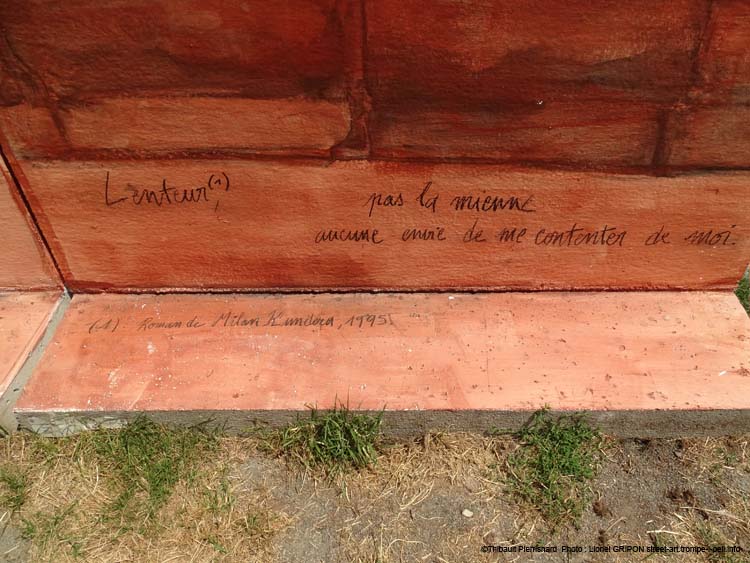 Lenteur(1), pas la mienne
aucune envie de me contenter de moi.
(1) Roman de Milan Kundera, 1995
©Thibaut Plennshard Photo : Lionel GRIPON street-art.trompe-l-oeil.info